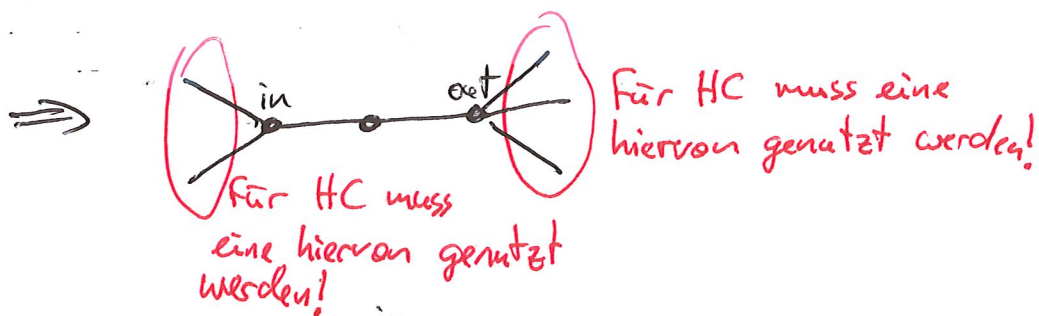 ⇒
in
out
Für HC muss eine
hiervon genutzt werden!
Für HC muss
eine hiervon genutzt
werden!